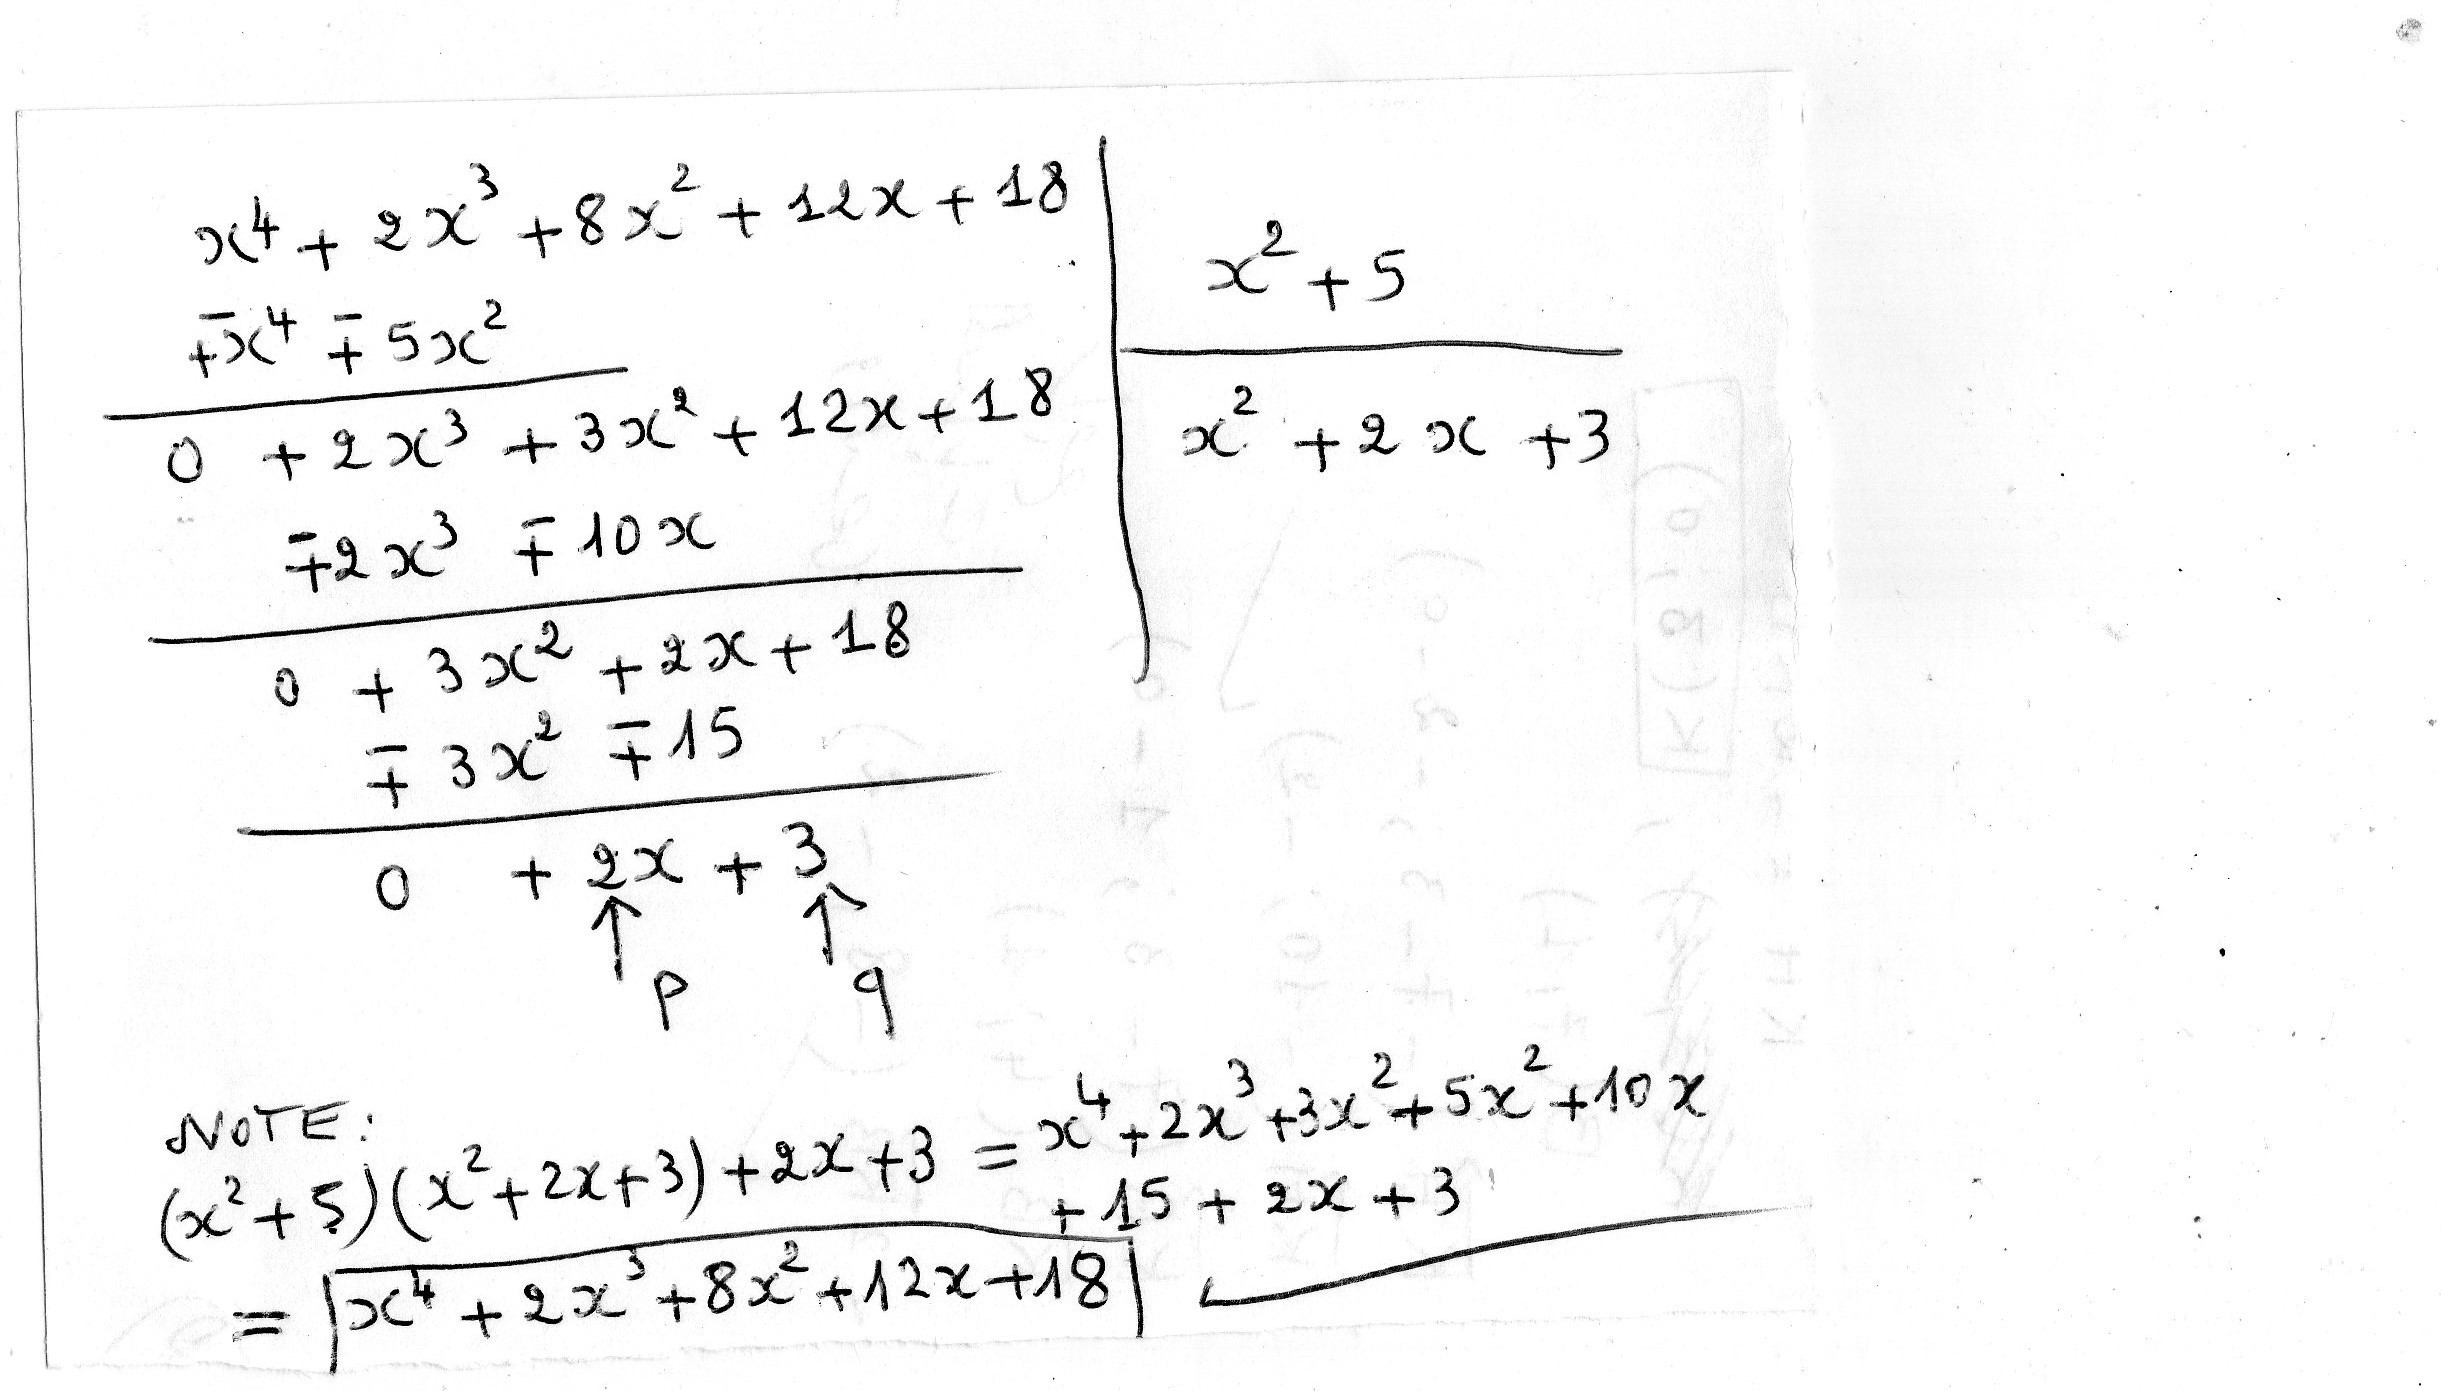 x⁴ + 2x³ + 8x² + 12x + 18
x² + 5
∓x⁴ ∓ 5x²
0 + 2x³ + 3x² + 12x + 18
x² + 2x + 3
∓2x³ ∓ 10x
0 + 3x² + 2x + 18
∓ 3x² ∓ 15
0 + 2x + 3
↑ ↑
p q
NOTE:
(x² + 5)(x² + 2x + 3) + 2x + 3 = x⁴ + 2x³ + 3x² + 5x² + 10x
+ 15 + 2x + 3
= x⁴ + 2x³ + 8x² + 12x + 18